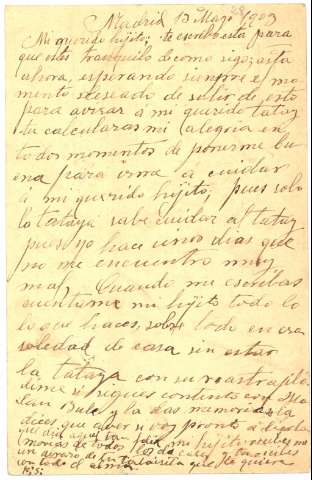 Madrid 13 Mayo 1909
Mi querido hijito: te escribo esta para
que estés tranquilo de como sigo; asta
ahora, esperando siempre el mo-
mento deseado de salir de esto
para avrasar á mi querido tatay
tu calcularas mi alegria en
todos momentos de ponerme bu
ena para irme á cuidar
á mi querido hijito, pues solo
la tataya sabe cuidar al tatay
pues yo hace unos dias que
no me encuentro muy
mal. Cuando me escribas
cuentame mi hijito todo lo
lo que haces, sobre todo en esa
soledad de casa sin estar
la tataya con su
dime si sigues contento con
y la das memorias
dices que aver si voy pronto á
de aqui van para mi hijito
de todos los de casa y
con todo el alma te quiere